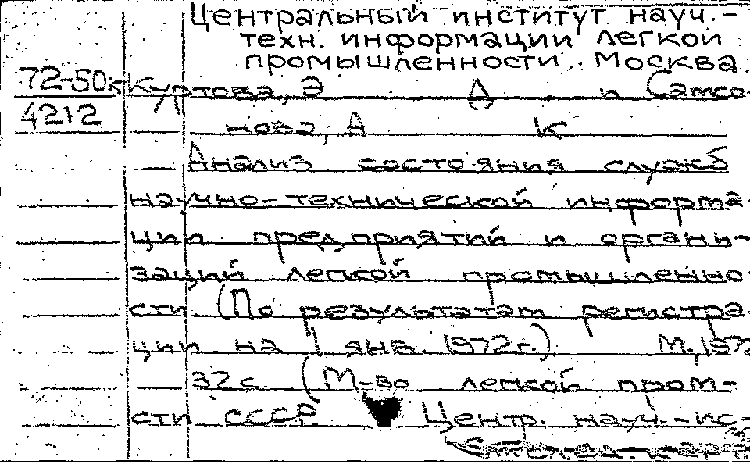 Центральный институт науч.-
техн. информации легкой
промышленности. Москва.
72-50к Куртова, Э Д и Самсо-
4212 нова, А К
Анализ состояния служб
научно-технической информа-
ции предприятий и органи-
заций легкой промышленно-
сти. (По результатам регистра-
ции на 1 янв. 1972 г.) М., 1972
32 с (М-во легкой пром-
сти СССР. Центр. науч.-ис-